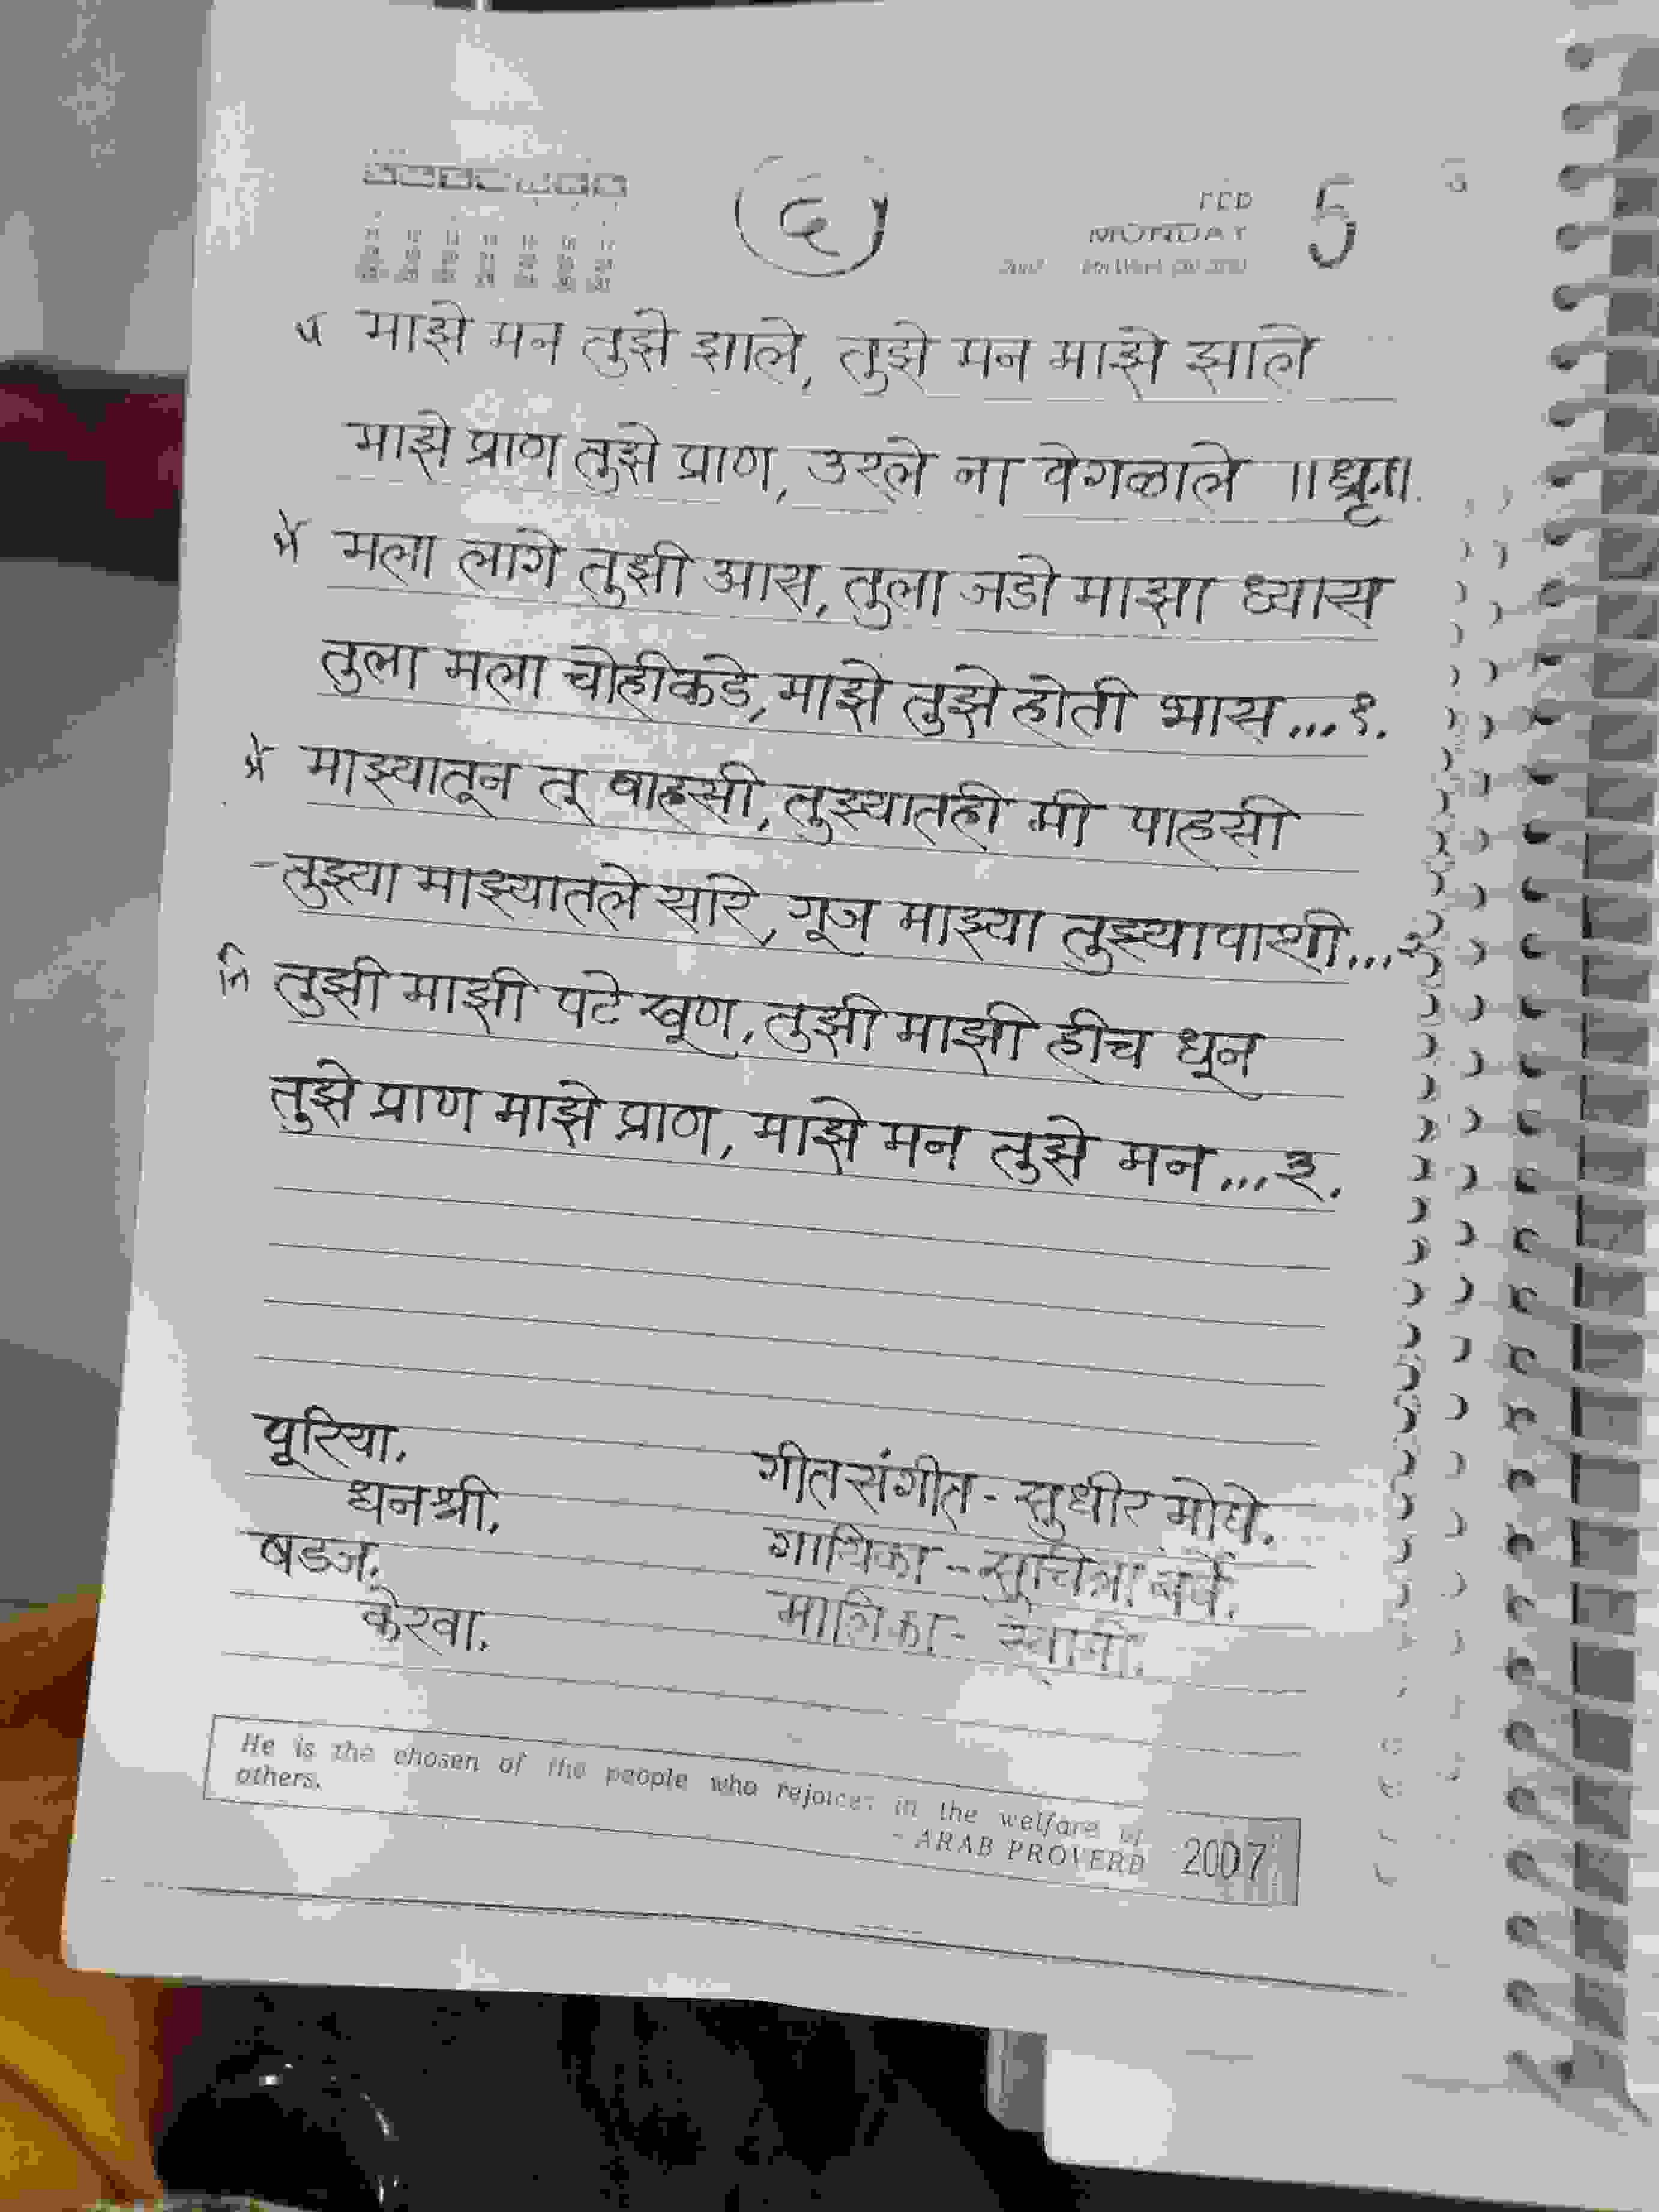 ६
FEB
MONDAY 5
2007
प माझे मन तुझे झाले, तुझे मन माझे झाले
माझे प्राण तुझे प्राण, उरले ना वेगळाले ॥धृ॥.
मला लागे तुझी आस, तुला जडो माझा ध्यास
तुला मला चोहीकडे, माझे तुझे होती भास...१.
माझ्यातून तू वाहसी, तुझ्यातही मी पाहसी
तुझ्या माझ्यातले सारे, गूज माझ्या तुझ्यापाशी...२
नि तुझी माझी पटे खूण, तुझी माझी हीच धून
तुझे प्राण माझे प्राण, माझे मन तुझे मन...३.
पूरिया. गीतसंगीत - सुधीर मोघे.
धनश्री. गायिका - सुचित्रा बर्वे.
षडज. मालिका - स्वामी.
केरवा.
He is the chosen of the people who rejoices in the welfare of
others.
- ARAB PROVERB 2007